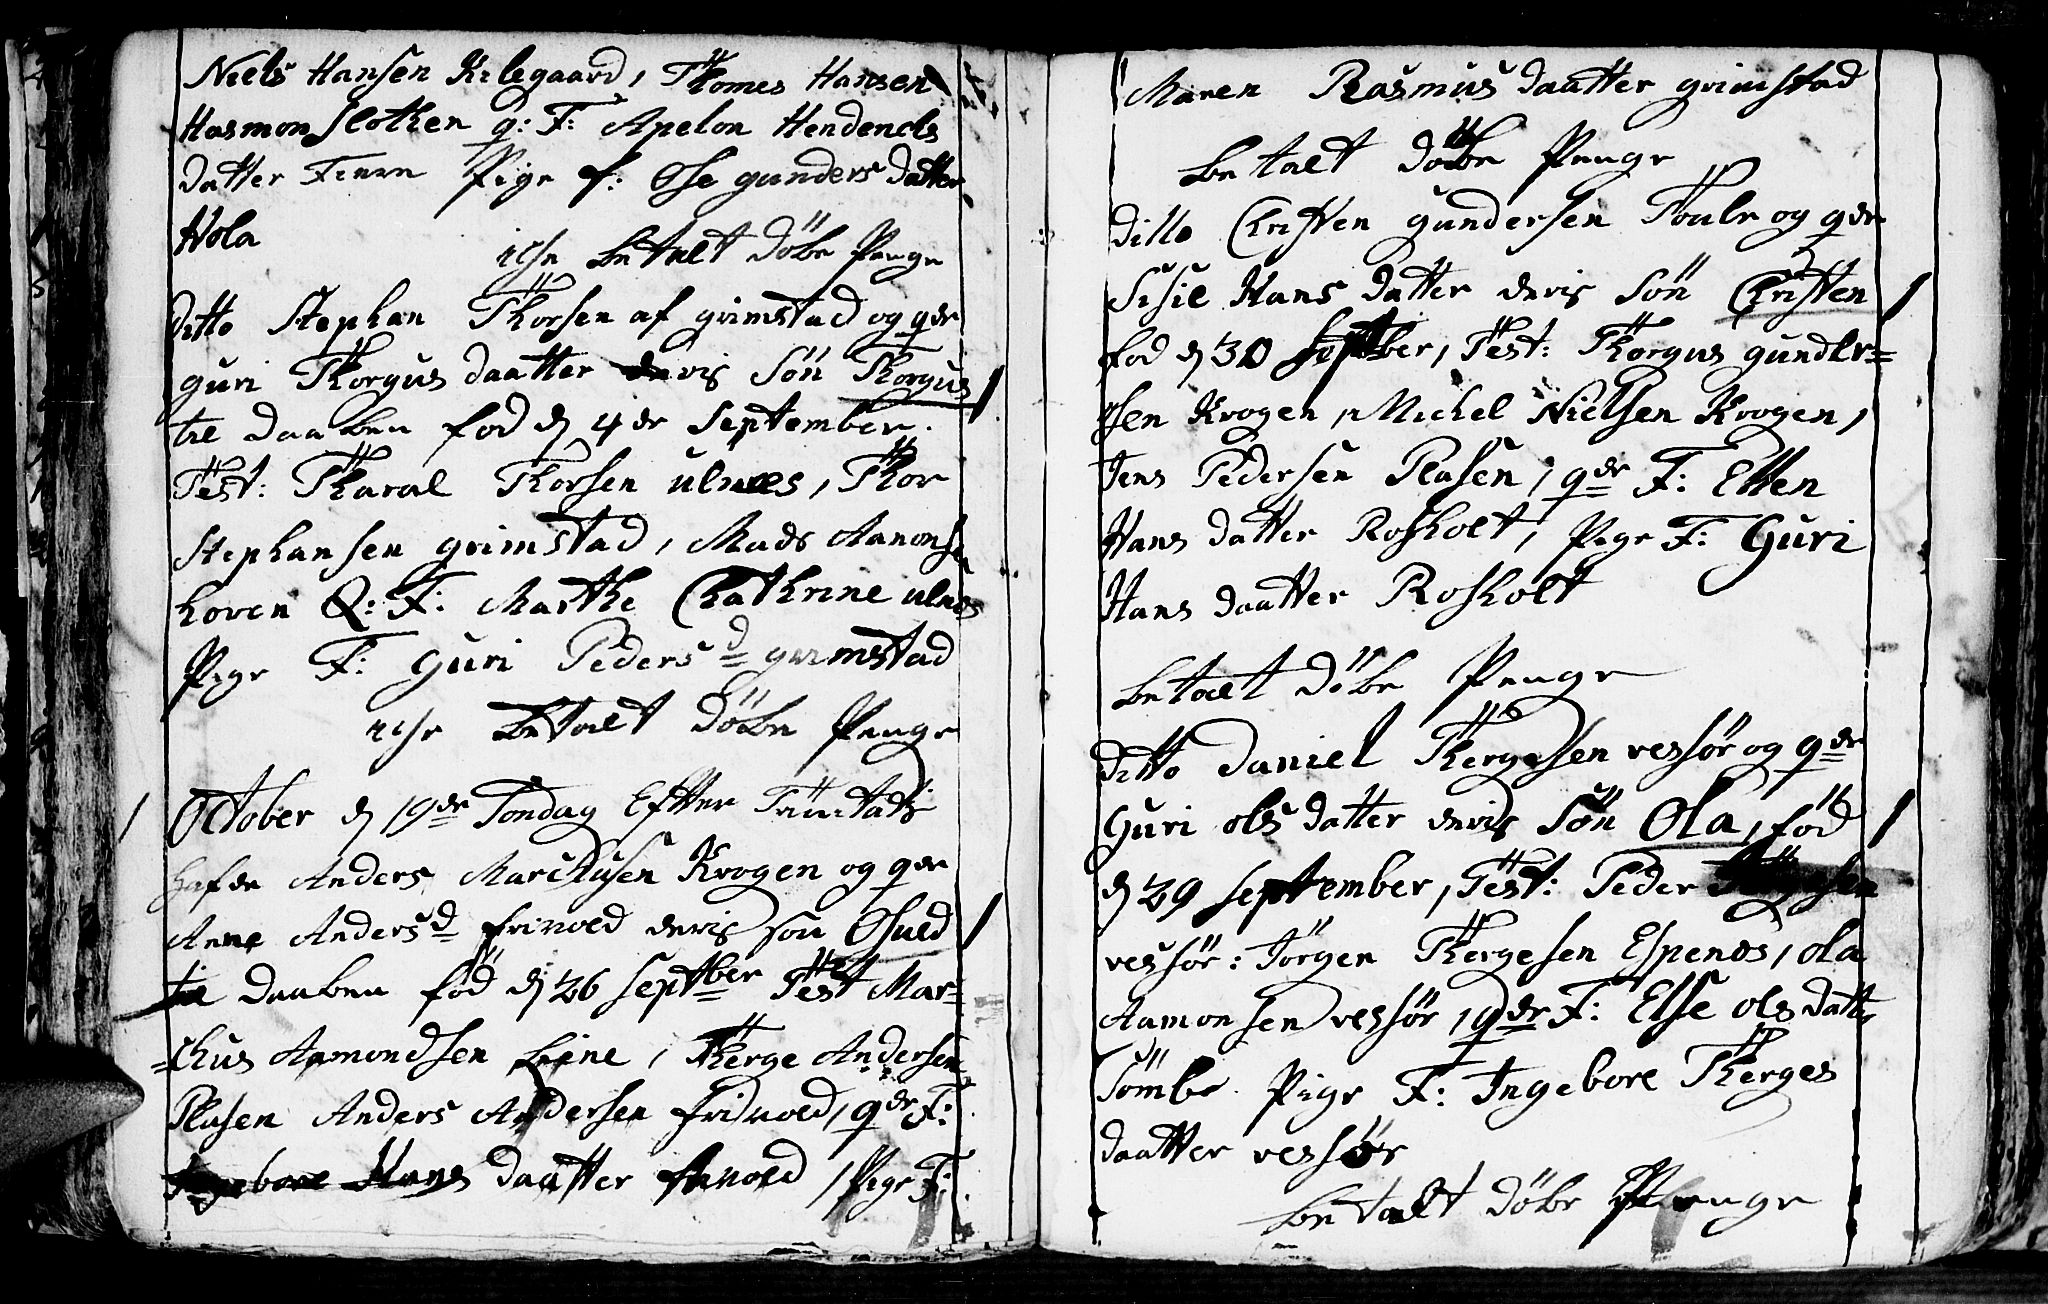 Niels Hansen Kilegaard, Thomes Hansen
Hasmon Slotken q: F: Apelon Hendencls
datter Fiere Pige f: Ose gunders datter
Hola
iche betalt döbe Penge
ditto Stephan Thorsen af grimstad og qde
guri Thorgus daatter devis Sön Thorgus
til daaben fod d 4de September.
Test: Tharal Thorsen ulnæs, Thor
Stephansen grimstad, Mads Aanonsen
hoven Q: F: Marthe Chathrine ulnes
Pige F: Guri Peders d grimstad
iche betalt döbe Penge
October d 19de Söndag Efter Trinitatis
hafde Anders Marchusen Krogen og qde
Anne Anders d frivold devis son Osuld
til daaben föd d 26 Septber Test Mar=
=chus Aamondsen Liene, Therge Andersen
Plasen Anders Andersen frivold, qde F:
Ingebore Hans daatter frivold, Pige F:
Maren Rasmus daatter grimstad
betalt döbe Penge
ditto Christen gundersen Toule og qde
Sisil Hans datter devis Sön Christen
fod d 30 Septber, Test: Thorgus gunder=
sen Krogen, Michel Nielsen Krogen,
Jens Pedersen Plasen, qde F: Ellen
Hans datter Rosholt, Pige F: Guri
Hans daatter Rosholt
betalt döbe Penge
ditto Daniel Thergesen vessör og qde
Guri ols datter devis Sön Ola, föd
d 29 September, Test: Peder Thergesen
vessör: Jörgen Thergesen Espenes, ola
Aamonsen vessör, qde F: Else ols datt
Sömbe Pige F: Ingebore Therges
daatter vessör
betalt döbe Penge